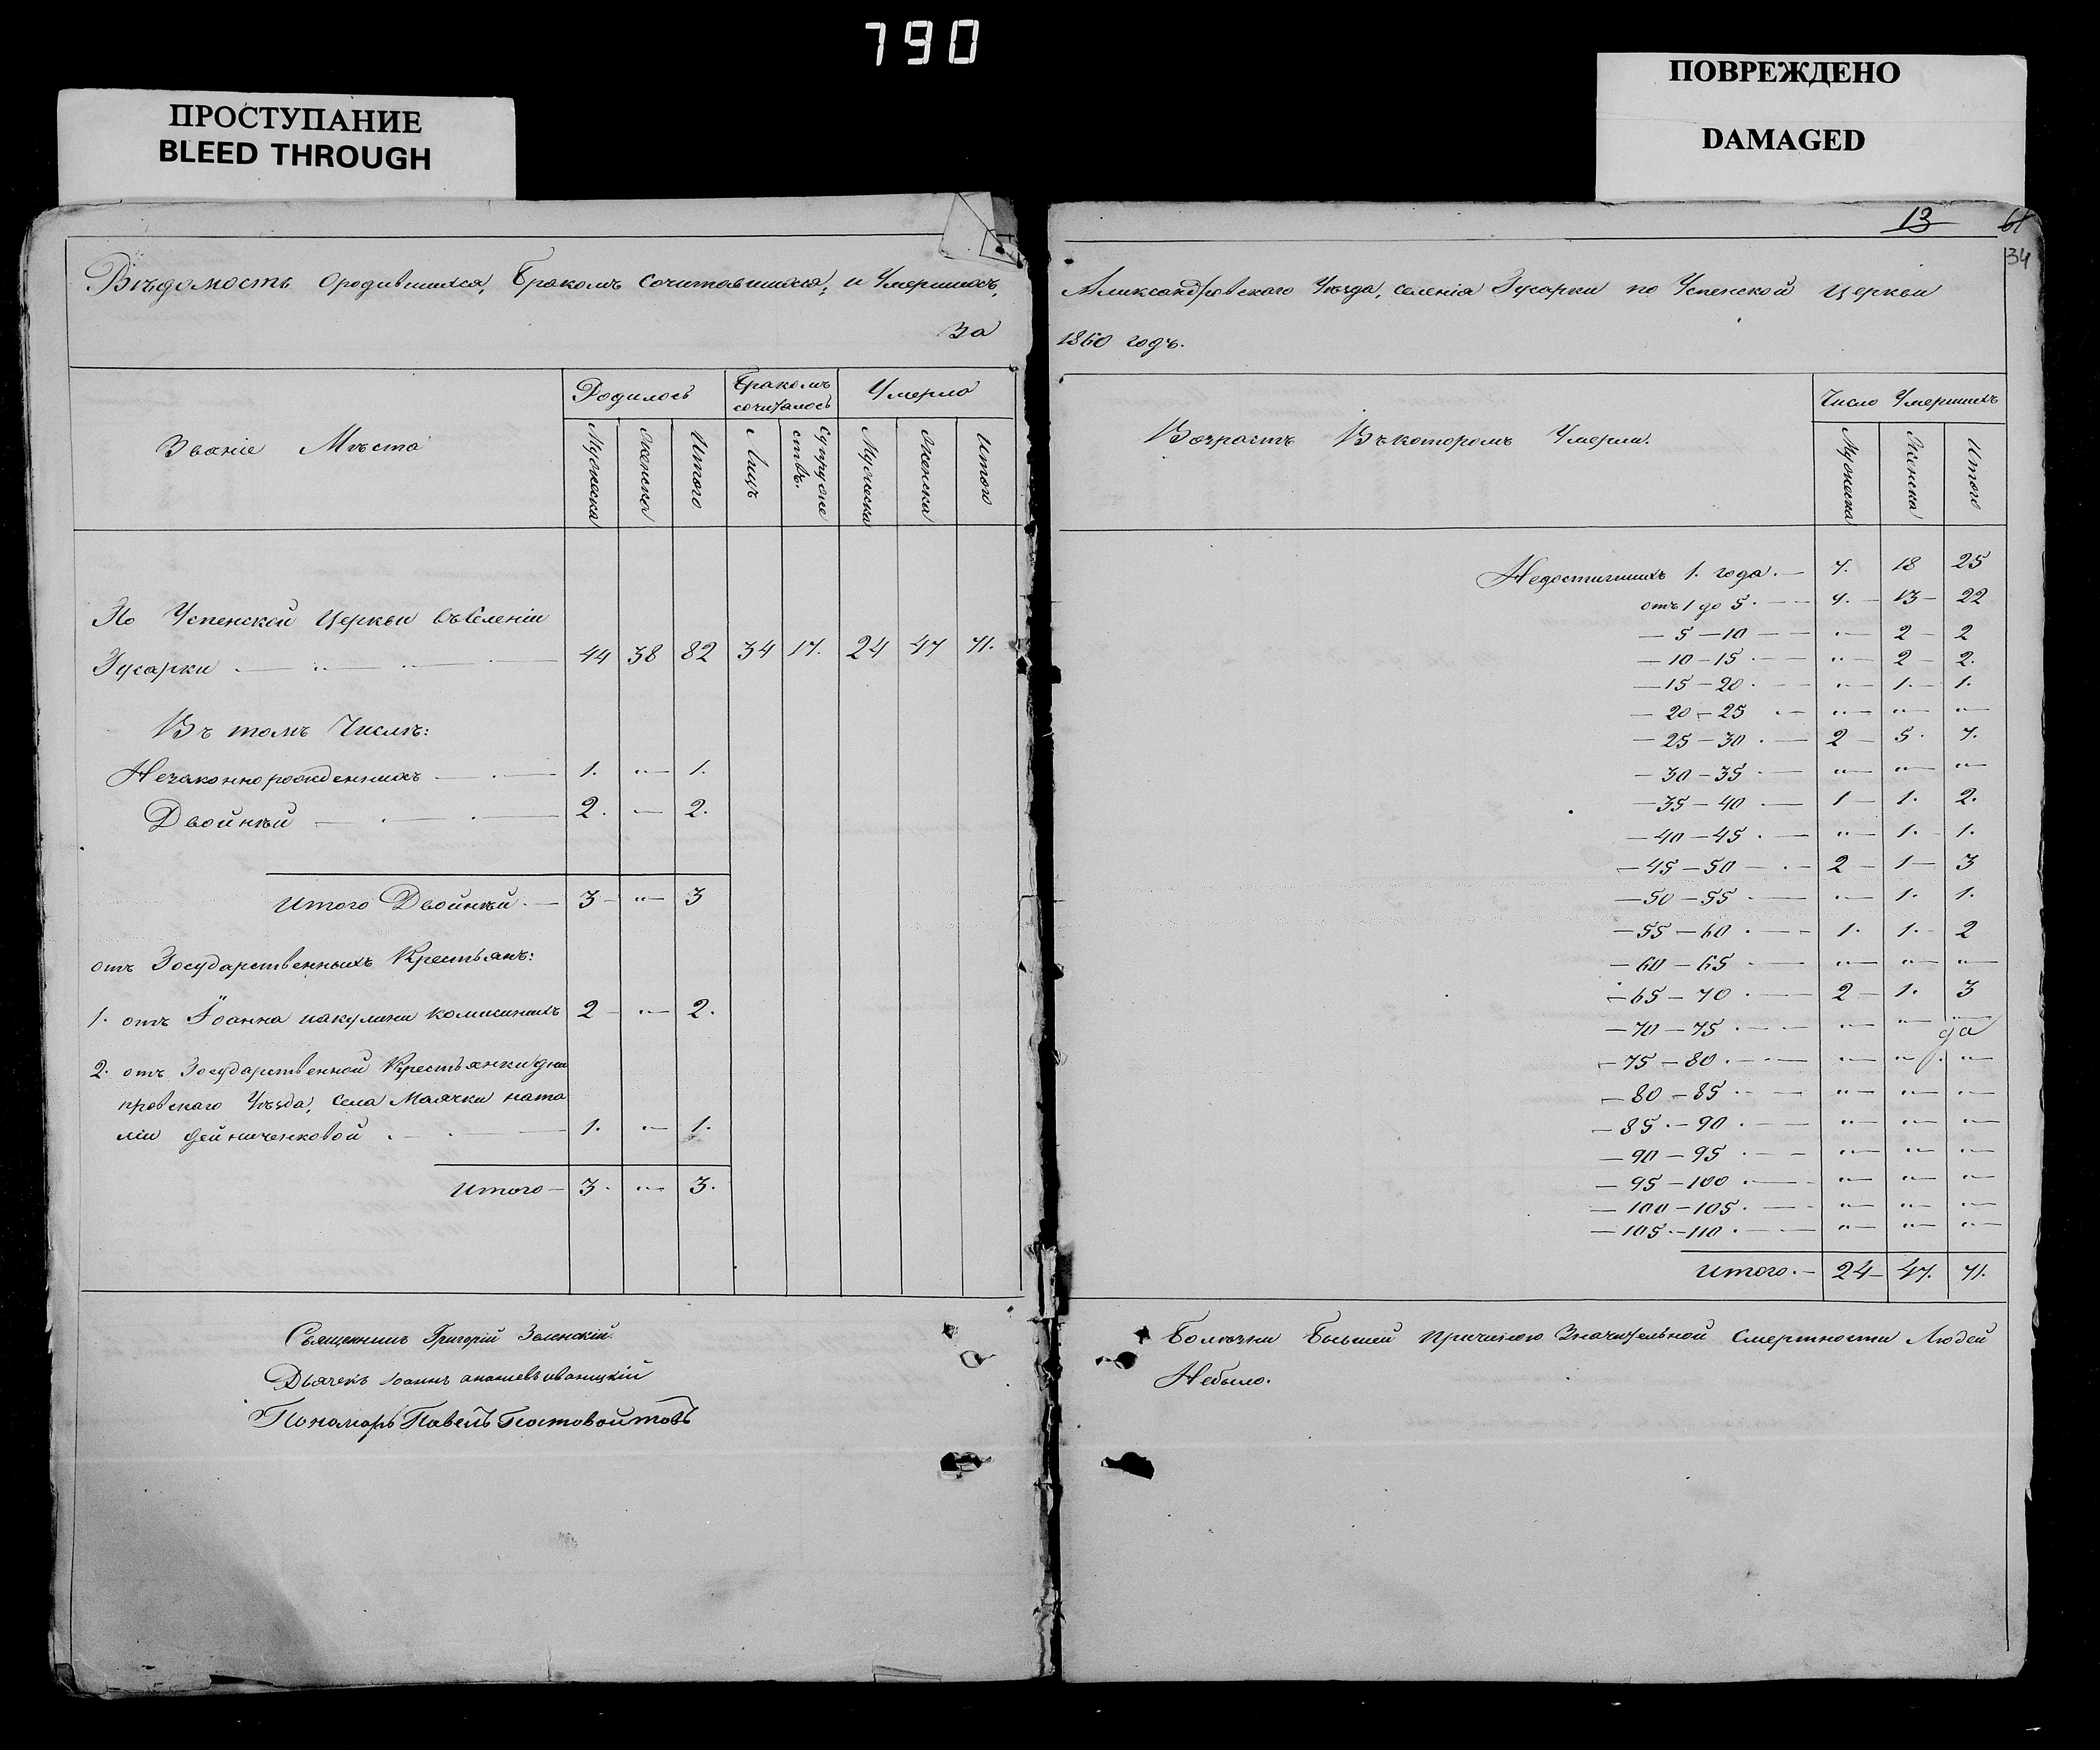 790
ПРОСТУПАНИЕ
BLEED THROUGH
ПОВРЕЖДЕНО
DAMAGED
13
61
34
Вѣдомость ородившихся, Бракомъ сочитавшихся, и Умершихъ,
за
Званіе Мѣста
Родилось
Бракомъ сочиталось
Умерло
Мужеска
Женска
Итого
Лицъ
Супружествъ.
Мужеска
Женска
Итого
По Успенской Церкви въ Селеніи
Гусарки — 44 38 82 34 17. 24 47 71.
Въ томъ Числѣ:
Незаконнорожденныхъ — 1. "— 1.
Двойнѣй — 2. — 2.
Итого Двойнѣй. — 3 — "— 3
отъ Государственныхъ Крестьянъ:
1. отъ Іоанна иакулини 2 — "— 2.
2. отъ Государственной Крестьянки дни
провскаго Уѣзда, села Маячки ната
ліи Дейниченковой — 1. "— 1.
Итого — 3. "— 3.
Священникъ Григорій Зеленскій.
Дьячекъ Іоаннъ
Пономарь Павелъ
Александровскаго Уѣзда, селенія Гусарки по Успенской Церкви
1860 годъ.
Возрастъ Въ которомъ Умерли.
Число Умершихъ
Мужеска
Женска
Итого
Недостигшихъ 1. года. — 7. 18 25
отъ 1 до 5. — 9. — 13 — 22
— 5 — 10 — "— 2 — 2
— 10 — 15 . — "— 2 — 2.
— 15 — 20 . — "— 1. — 1.
— 20 — 25 — "— "— "—
— 25 — 30 . — 2 — 5. 7.
— 30 — 35 — "— "— "—
— 35 — 40 . — 1 — 1. 2.
— 40 — 45 . — "— 1. — 1.
— 45 — 50 — 2 — 1 — 3
— 50 — 55 — "— 1. 1.
— 55 — 60 . — 1. 1. — 2
— 60 — 65 — "— "— "—
— 65 — 70 . — 2 — 1. 3
— 70 — 75 . — "— "— "—
— 75 — 80 . — "— "— "—
— 80 — 85 — "— "— "—
— 85 . — 90 . — "— "— "—
— 90 — 95 . — "— "— "—
— 95 — 100 — "— "— "—
— 100 — 105 . — "— "— "—
— 105 . — 110 — "— "— "—
Итого. — 24 — 47. 71.
Болѣзни Бывшей причиною Значительной Смертности Людей
Небыло.